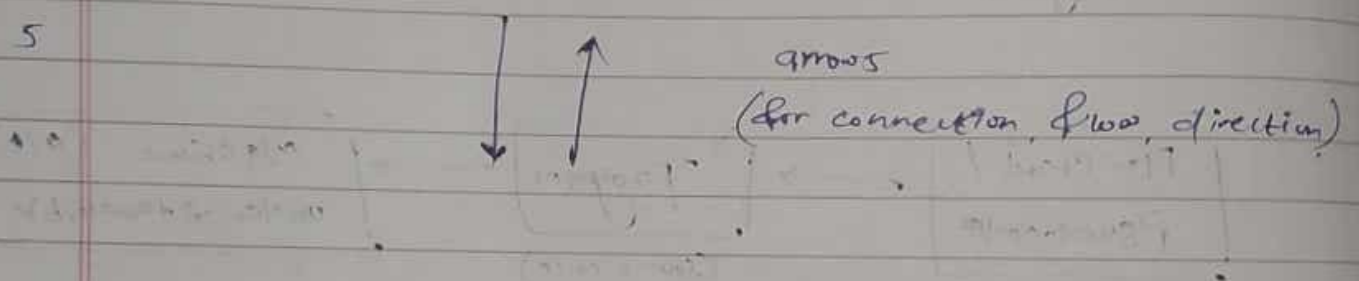 5
arrows
(for connection, flow, direction)